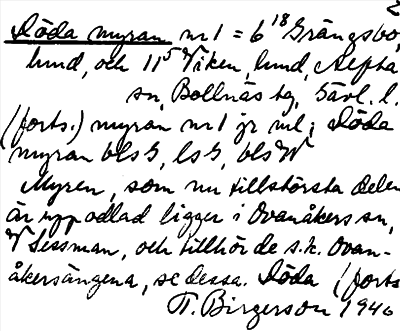 2
Döda myran nr 1 = 6 18 Grängsbo,
lund, och 11 5 Viken, lund, Alfta
sn, Bollnäs tg, Gävl. l.
(forts.) myran nr 1 jr ml; Döda
myran bls S, ls S, bls W
Myren, som nu till största delen
är uppodlad ligger i Ovanåkers sn,
V Sessman, och tillhör de s.k. Ovan-
åkersängena, se dessa. Döda (forts
T. Birgerson 1940